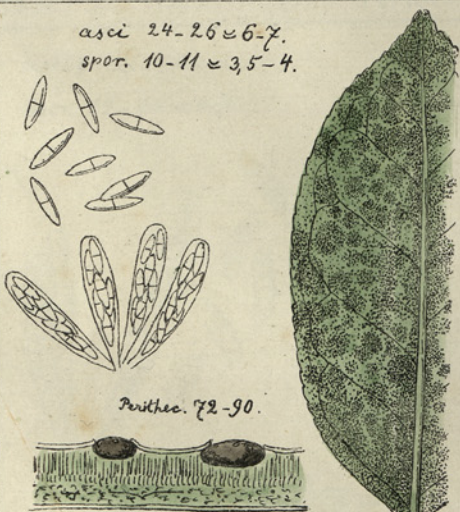 asci 24-26 ≈ 6-7.
spor. 10-11 ≈ 3,5-4.
Perithec. 72-90.